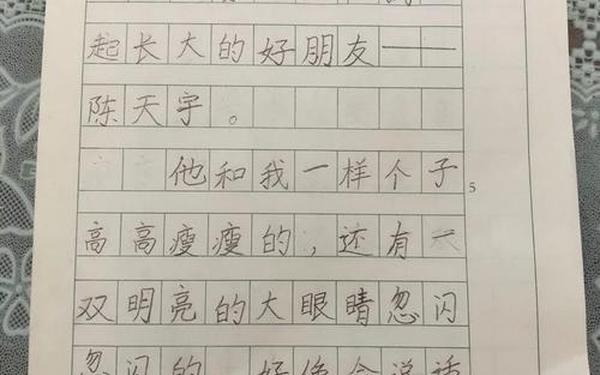 起长大的好朋友——
陈天宇。
他和我一样个子
5
高高瘦瘦的,还有一
双明亮的大眼睛忽闪
忽闪的 好像会说话